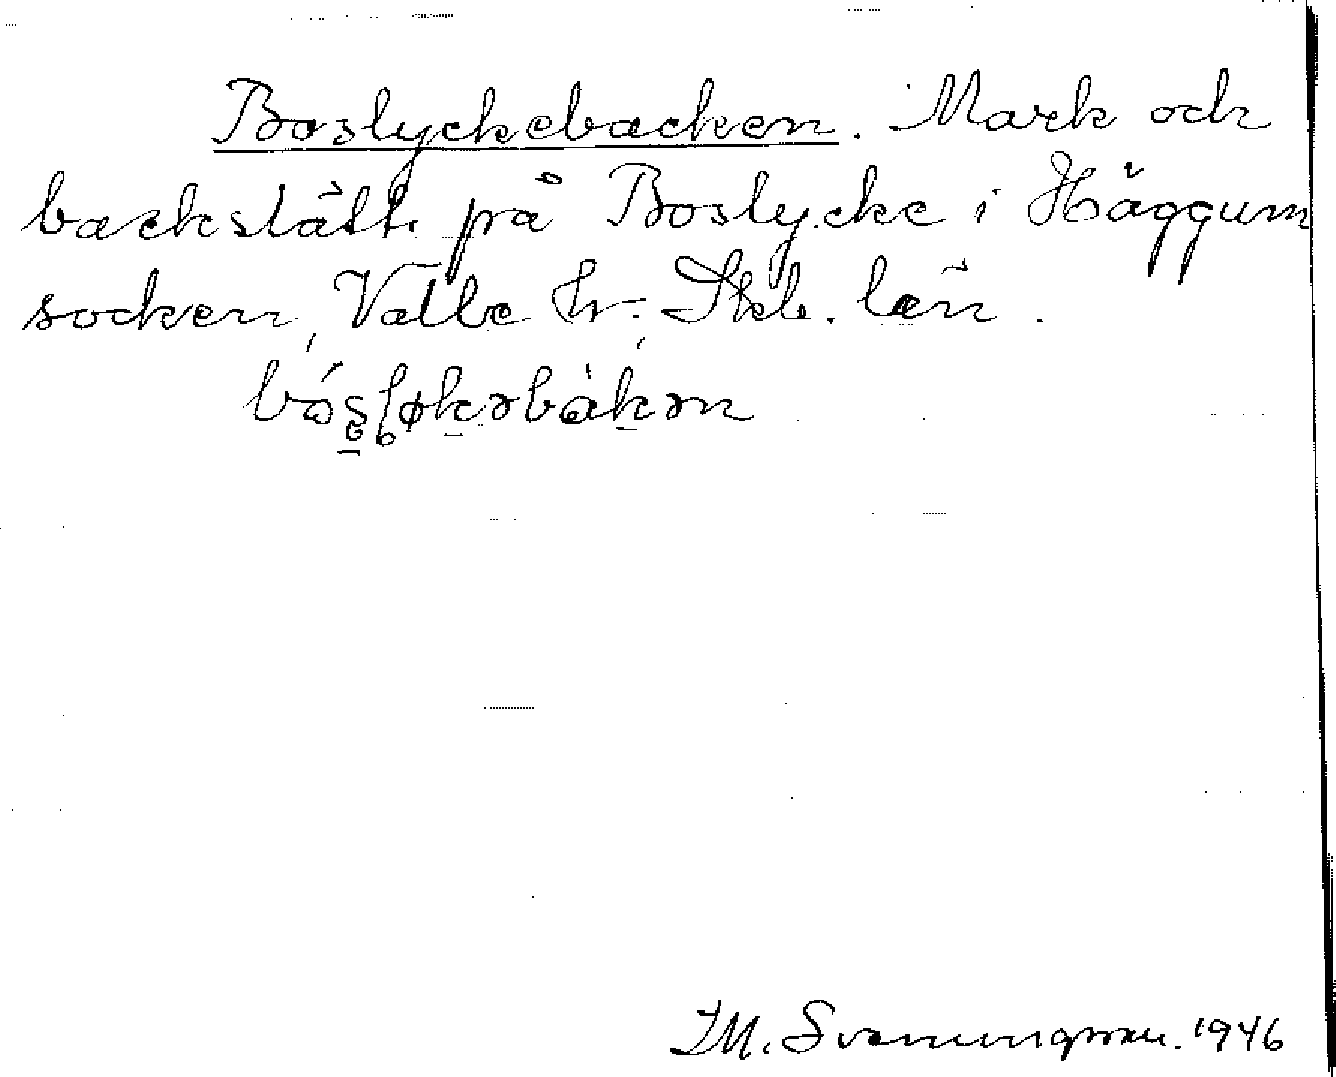 Boslyckebacken. Mark och
backslätt på Boslycke i Häggum
socken, Valle hr; Skb. län.
I M. Svenungsson. 1946